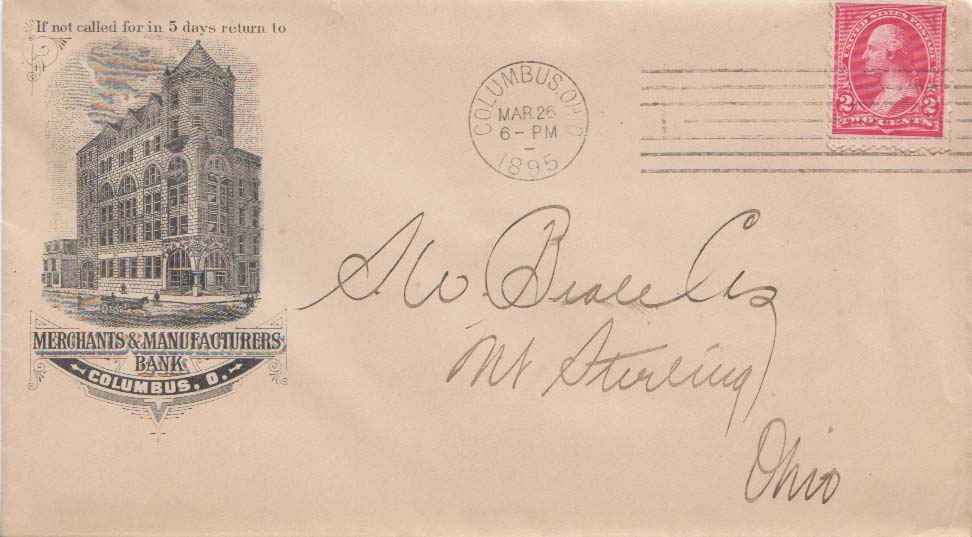 If not called for in 5 days return to
MERCHANTS & MANUFACTURERS
BANK
COLUMBUS. O.
COLUMBUS, OHIO
MAR 26
6 - PM
1895
UNITED STATES POSTAGE
2 2
TWO CENTS
S. W.
Mt Sterling
Ohio